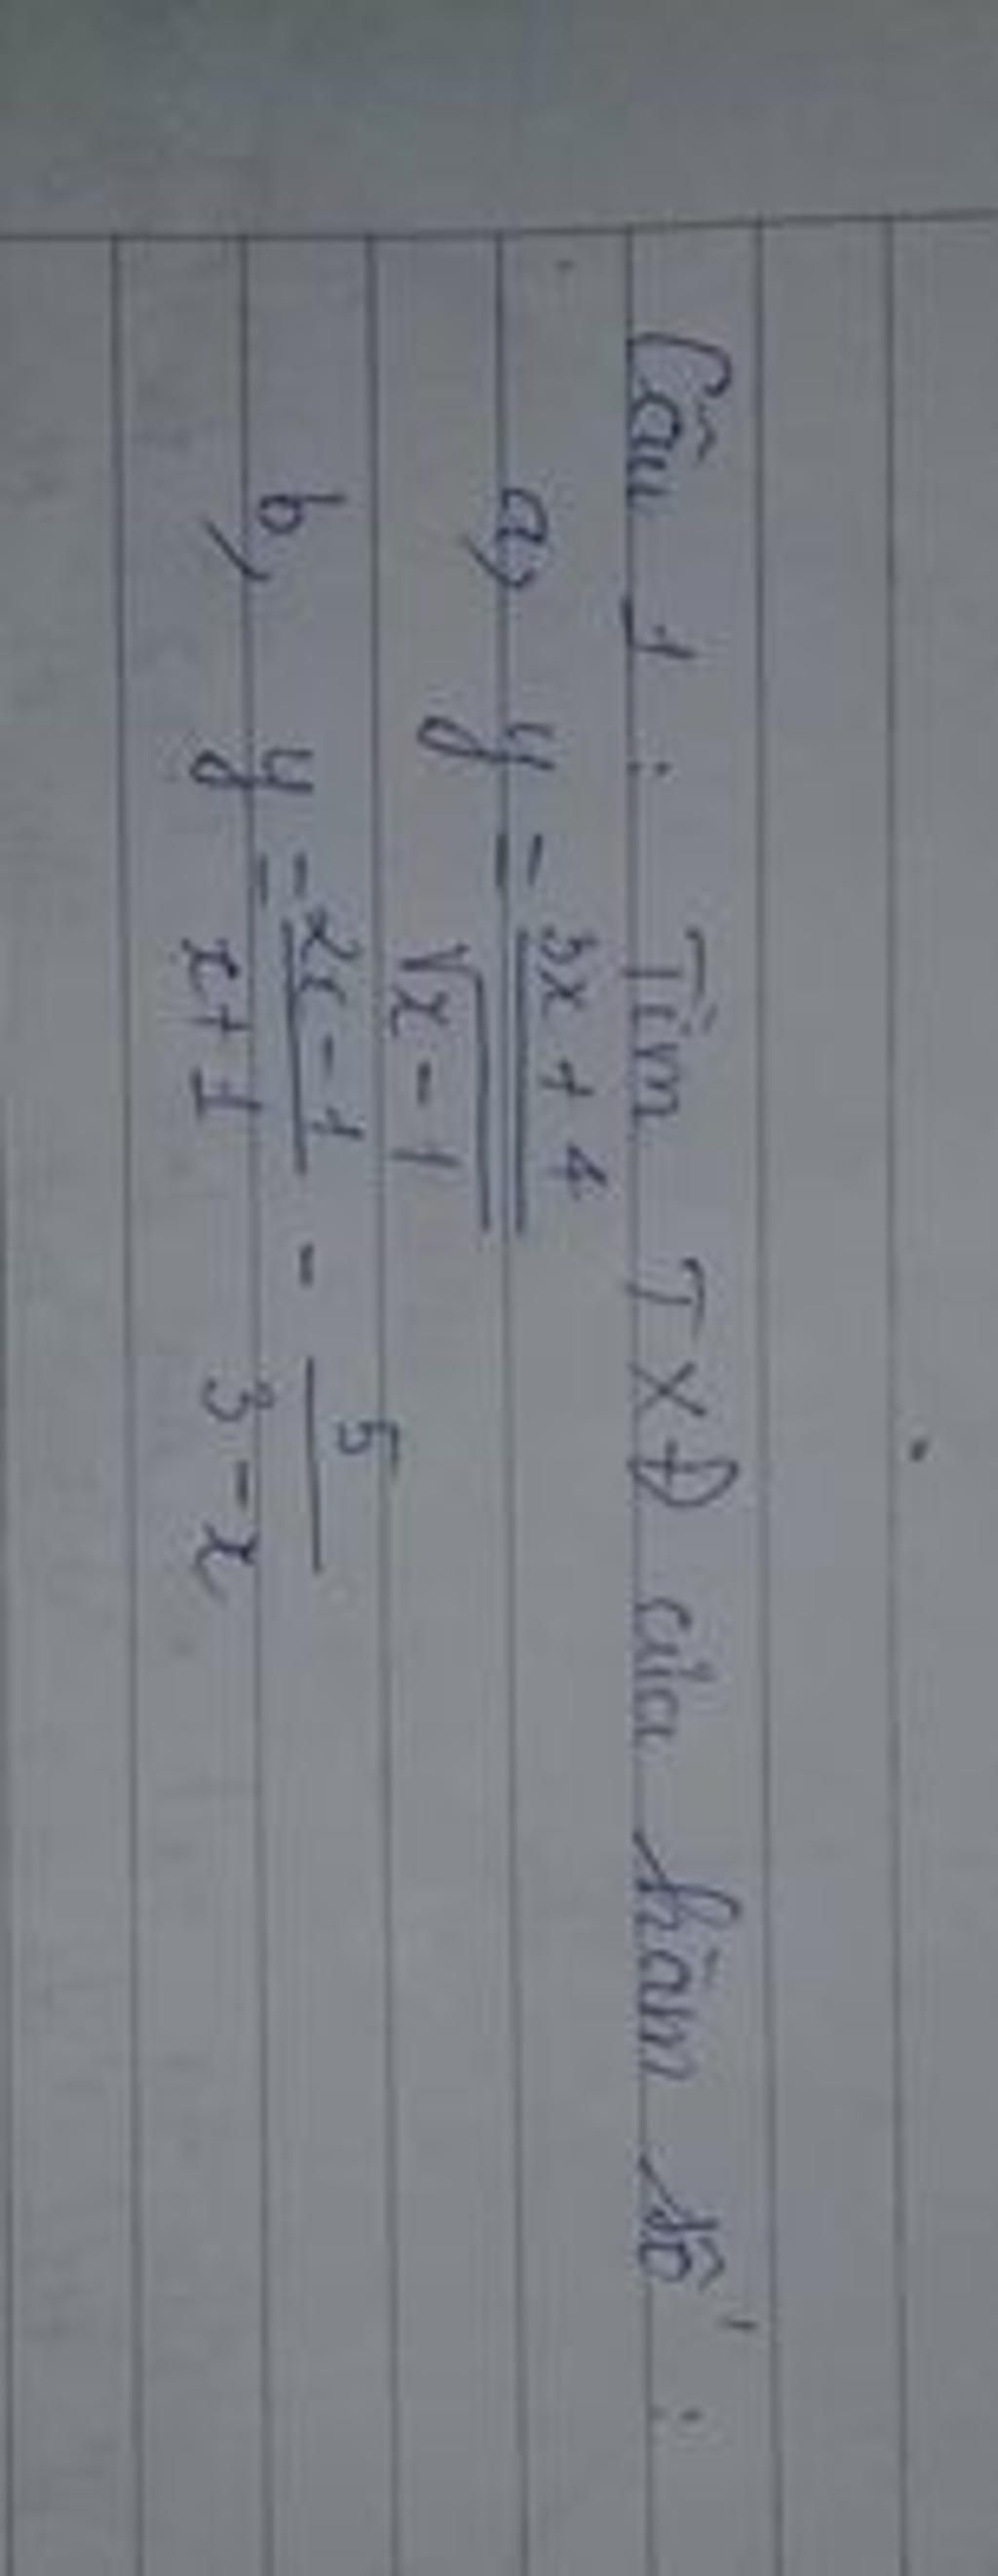 Câu 1 : Tìm TXĐ của hàm số :
a, y = 3x + 4 / √x - 1
b, y = 2x - 1 / x + 1 - 5 / 3 - x